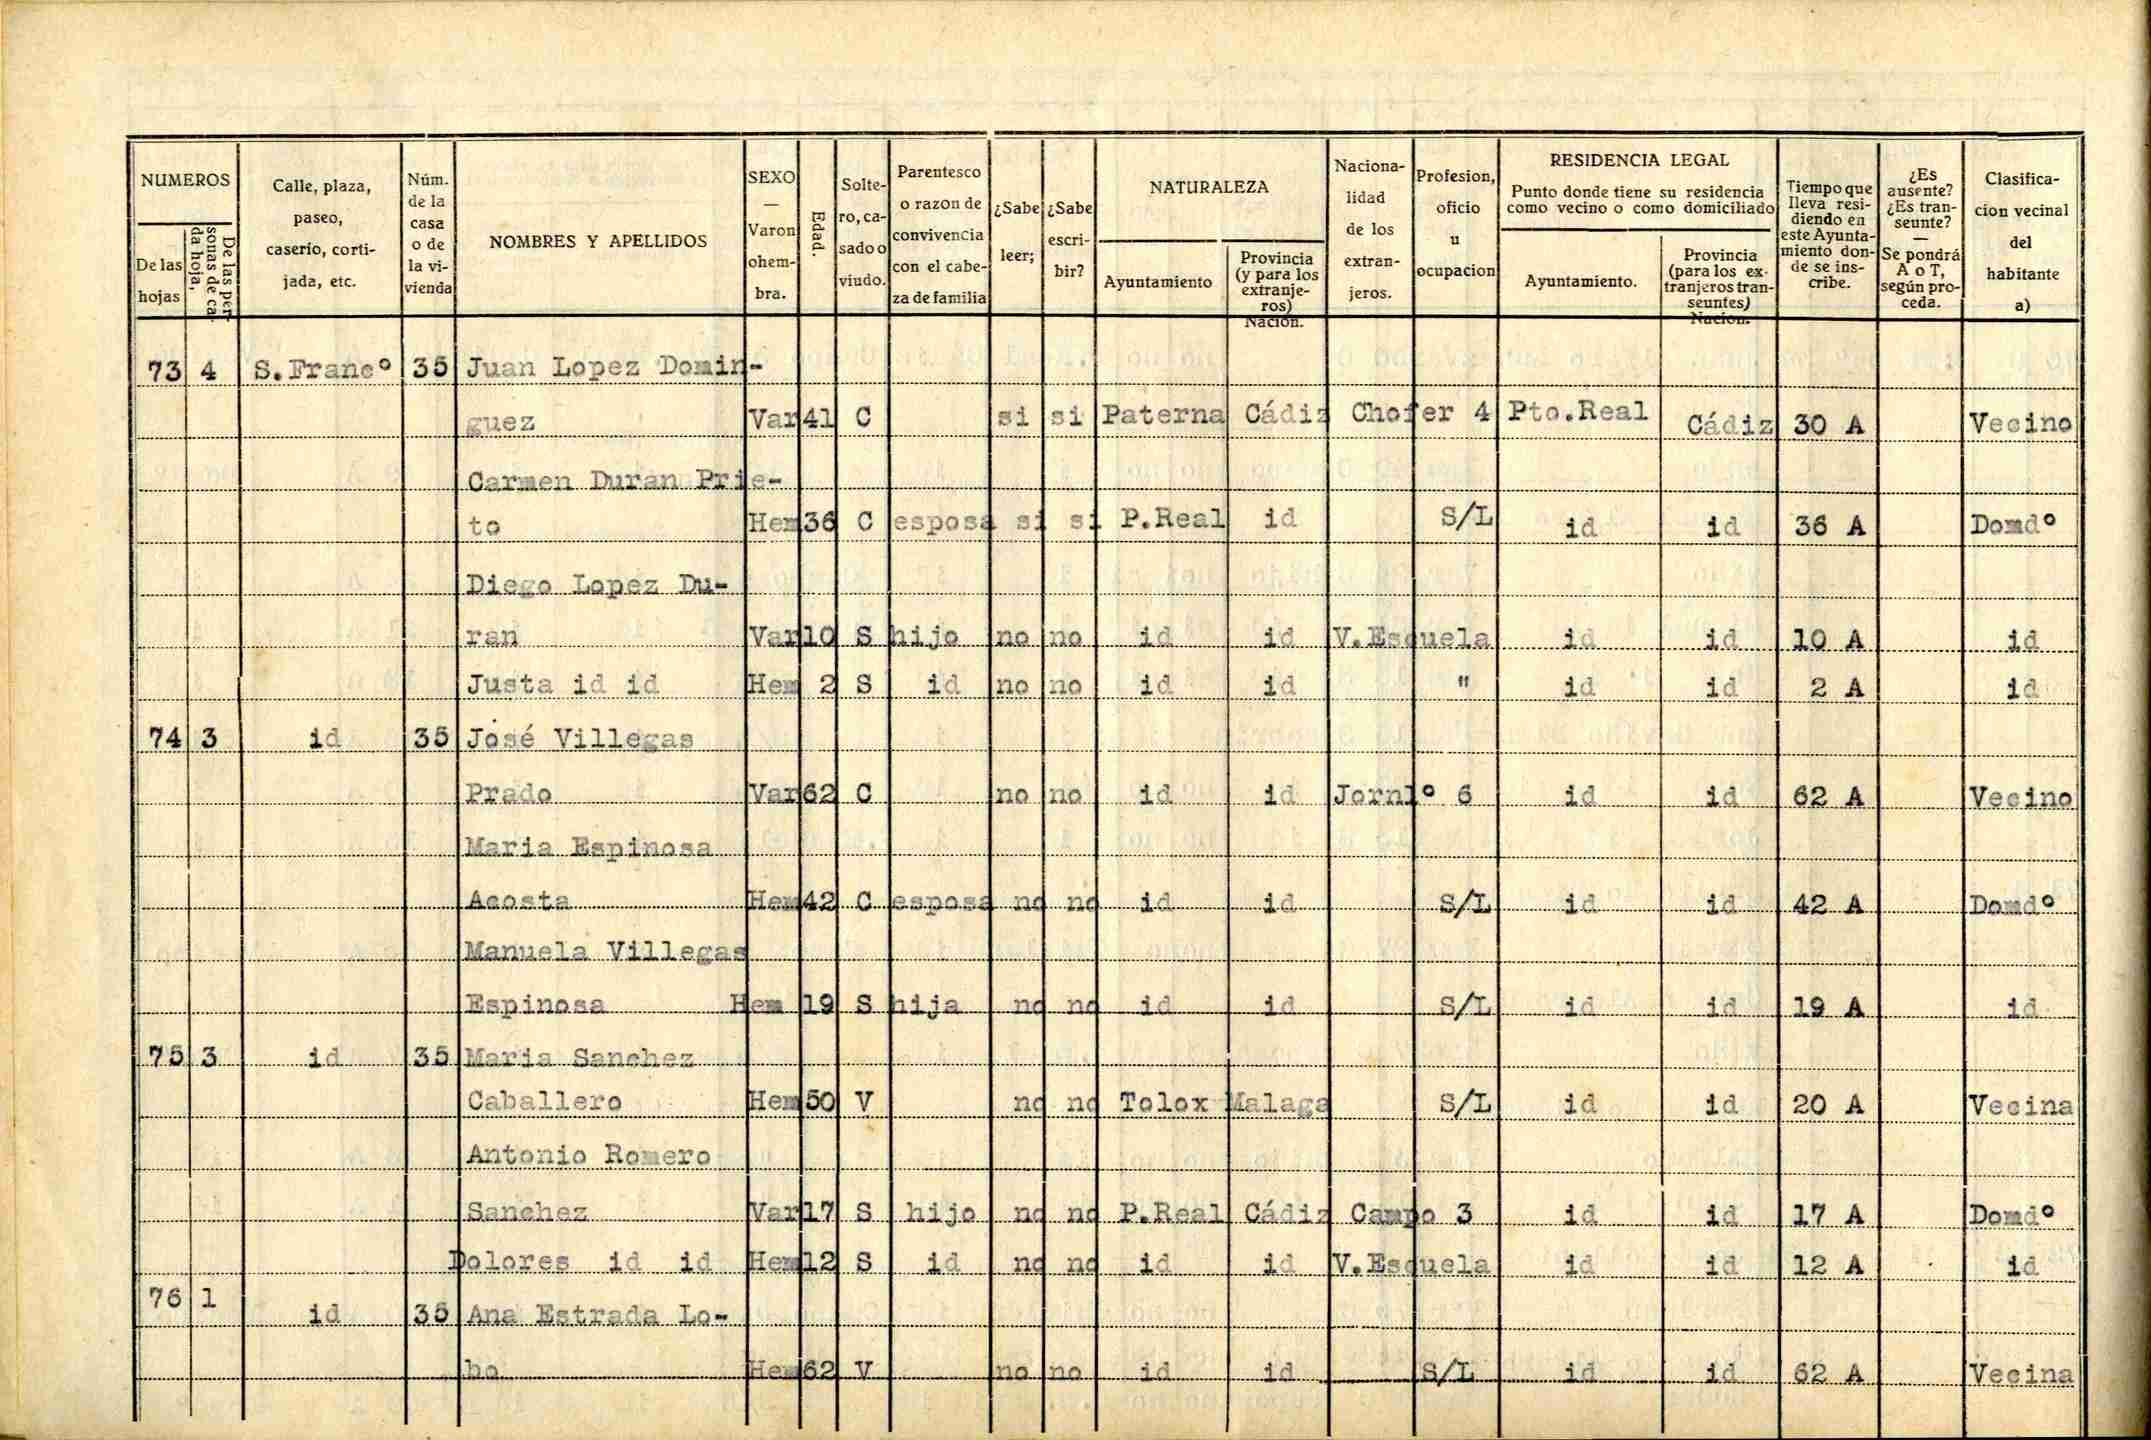 NUMEROS
De las hojas
De las personas de cada hoja,
Calle, plaza, paseo, caserío, cortijada, etc.
Núm. de la casa o de la vivienda
NOMBRES Y APELLIDOS
SEXO — Varon o hembra.
Edad.
Soltero, casado o viudo.
Parentesco o razon de convivencia con el cabeza de familia
¿Sabe leer;
¿Sabe escribir?
NATURALEZA
Ayuntamiento
Provincia (y para los extranjeros) Nación.
Nacionalidad de los extranjeros.
Profesion, oficio u ocupacion
RESIDENCIA LEGAL
Punto donde tiene su residencia como vecino o como domiciliado
Ayuntamiento.
Provincia (para los extranjeros transeuntes) Nacion.
Tiempo que lleva residiendo en este Ayuntamiento donde se inscribe.
¿Es ausente? ¿Es transeunte? — Se pondrá A o T, según proceda.
Clasificacion vecinal del habitante a)
73 4 S.Francº 35 Juan Lopez Domin-
guez Var 41 C si si Paterna Cádiz Chofer 4 Pto.Real Cádiz 30 A Vecino
Carmen Duran Prie-
to Hem 36 C esposa si si P.Real id S/L id id 36 A Domdº
Diego Lopez Du-
ran Var 10 S hijo no no id id V.Escuela id id 10 A id
Justa id id Hem 2 S id no no id id " id id 2 A id
74 3 id 35 José Villegas
Prado Var 62 C no no id id Jornlº 6 id id 62 A Vecino
Maria Espinosa
Acosta Hem 42 C esposa no no id id S/L id id 42 A Domdº
Manuela Villegas
Espinosa Hem 19 S hija no no id id S/L id id 19 A id
75 3 id 35 Maria Sanchez
Caballero Hem 50 V no no Tolox Malaga S/L id id 20 A Vecina
Antonio Romero
Sanchez Var 17 S hijo no no P.Real Cádiz Campo 3 id id 17 A Domdº
Dolores id id Hem 12 S id no no id id V.Escuela id id 12 A id
76 1 id 35 Ana Estrada Lo-
bo Hem 62 V no no id id S/L id id 62 A Vecina